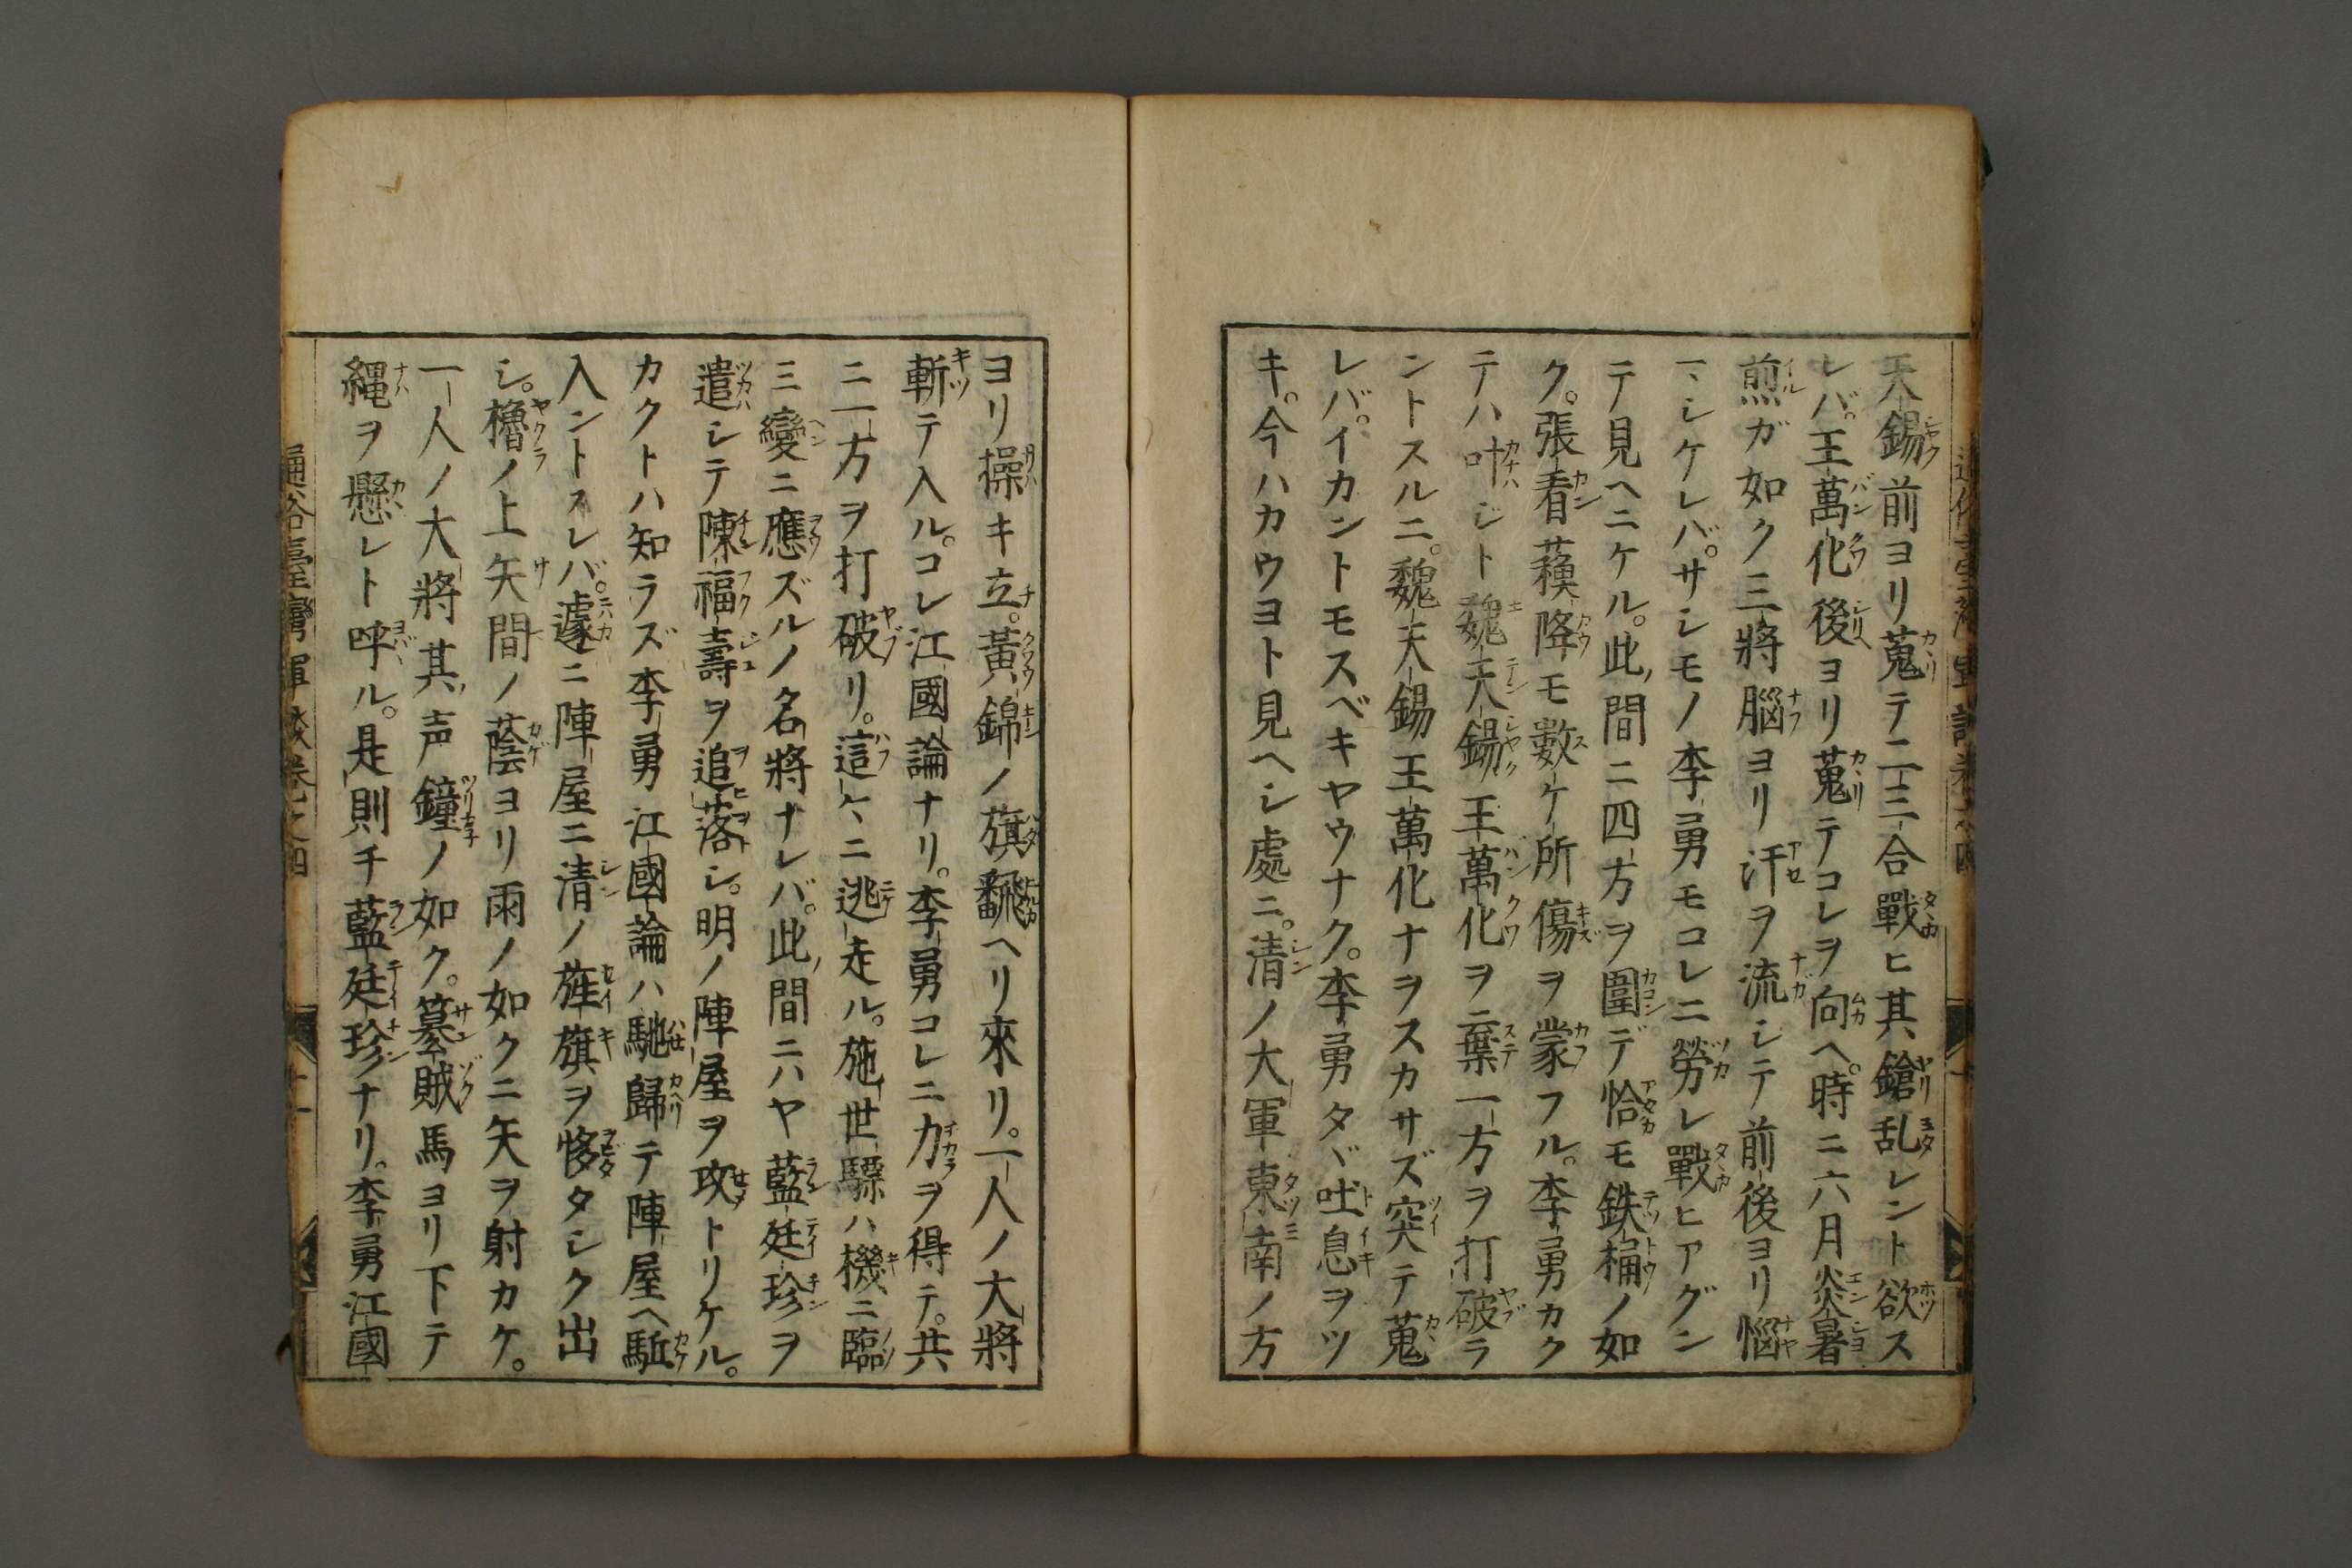 天錫前ヨリ蒐テ二三合戰ヒ其鎗乱レント欲ス
レバ。王萬化後ヨリ蒐テコレヲ向ヘ。時ニ六月炎暑
煎ガ如ク三將腦ヨリ汗ヲ流シテ前後ヨリ惱
一シケレバ。サシモノ李勇モコレニ勞レ戰ヒアグン
テ見ヘニケル。此間ニ四方ヲ圍デ恰モ鉄桶ノ如
ク。張看蘓降モ數ケ所傷ヲ蒙フル。李勇カク
テハ叶ジト魏天錫王萬化ヲ棄一方ヲ打破ラ
ントスルニ。魏天錫王萬化ナヲスカサズ突テ蒐
レバ。イカントモスベキヤウナク。李勇タヾ吐息ヲツ
キ。今ハカウヨト見ヘシ處ニ。清ノ大軍東南ノ方
ヨリ操キ立。黃錦ノ旗飜ヘリ來リ。一人ノ大將
斬テ入ル。コレ江國論ナリ。李勇コレニ力ヲ得テ。共
ニ一方ヲ打破リ。這々ニ逃走ル。施世驃ハ機ニ臨
三變ニ應ズルノ名將ナレバ。此間ニハヤ藍廷珍ヲ
遣シテ陳福壽ヲ追落シ。明ノ陣屋ヲ攻トリケル。
カクトハ知ラズ李勇江國論ハ馳歸テ陣屋ヘ駈
入ントスレバ。遽ニ陣屋ニ清ノ旌旗ヲ夥タシク出
シ。櫓ノ上矢間ノ蔭ヨリ雨ノ如クニ矢ヲ射カケ。
一人ノ大將其声鐘ノ如ク。簒賊馬ヨリ下テ
縄ヲ懸レト呼ル。是則チ藍廷珍ナリ。李勇江國
通俗臺灣軍談卷之四